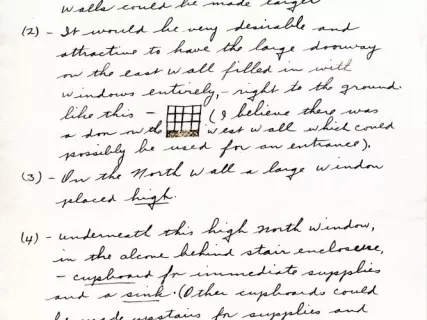 walls could be made larger
(2) - It would be very desirable and
attractive to have the large doorway
on the east wall filled in with
windows entirely, - right to the ground.
like this - (I believe there was
a door on the west wall which could
possibly be used for an entrance).
(3) - On the North wall a large window
placed high.
(4) - underneath this high north window,
in the alcove behind stair enclosure,
- cupboard for immediate supplies
and a sink. (Other cupboards could
be made upstairs for supplies and